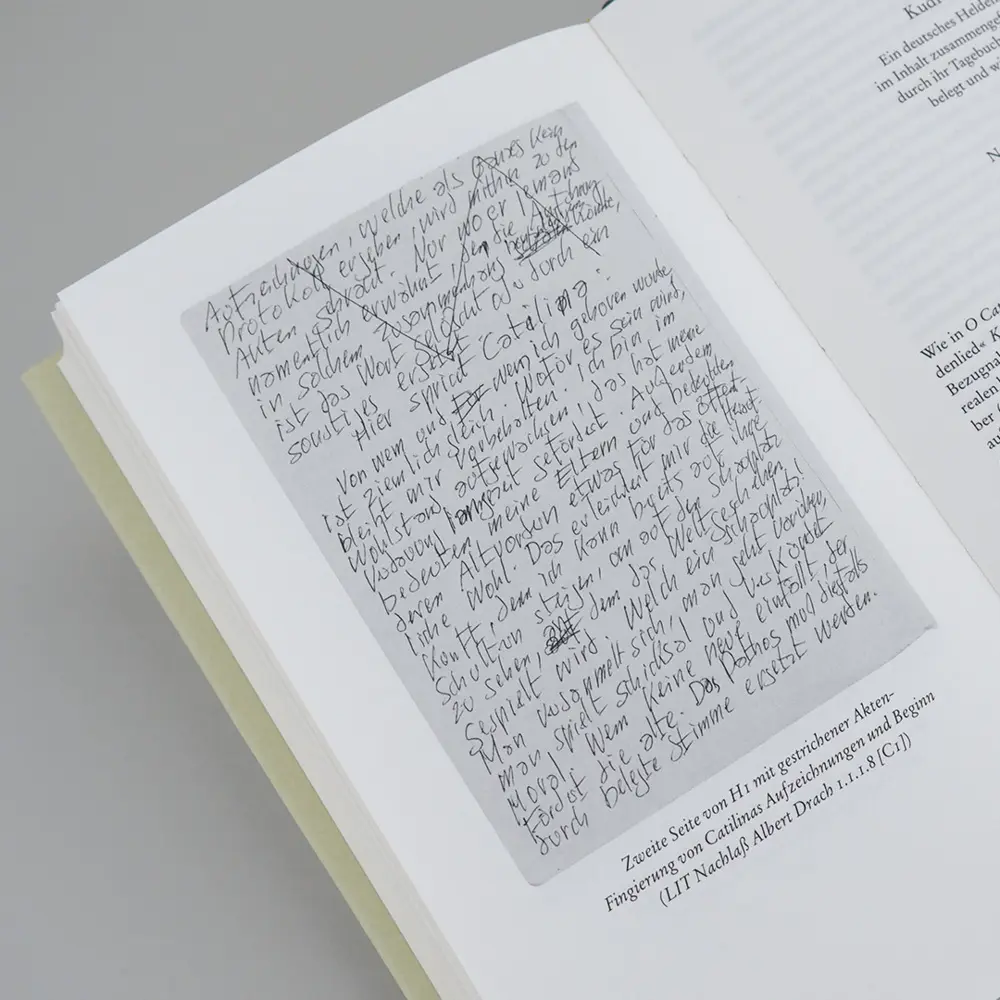 Aufzeichnungen, welche als Ganzes kein
Protokoll ergeben, wird mithin zu den
Akten . Nur wo er jemand
namentlich erwähnt, den die
in solchem Zusammenhang könnte,
ist das Wort gelöscht oder durch ein
sonstiges ersetzt.
Hier spricht Catilina:
Von wem und wem ich geboren wurde,
ist ziemlich gleich. Wofür es sein wird,
bleibt mir vorbehalten. Ich bin im
Wohlstand aufgewachsen, das hat meine
gefördert. Außerdem
bedeuten meine Eltern und bedeuteten
deren Altvordern etwas für das öffent-
liche Wohl. Das erleichtert mir die
kunft, denn ich kann bereits auf ihre
Schultern steigen, um auf den Schauplatz
zu sehen, auf dem das Weltgeschehen
gespielt wird. Welch ein Schauplatz!
Man versammelt sich, man geht vorüber,
man spielt Schicksal und verkündet
Moral. Wem keine neue einfällt, der
fördert die alte. Das Pathos muß diesfalls
durch belegte Stimme ersetzt werden.
Zweite Seite von H1 mit gestrichener Akten-
Fingierung von Catilinas Aufzeichnungen und Beginn
(LIT Nachlaß Albert Drach 1.1.1.8 [C1])
Ein deutsches Helden
im Inhalt zusammenge
durch ihr Tagebuch
belegt und wi
N
Wie in O Cat
denlied« K
Bezugna
realen
ber
au